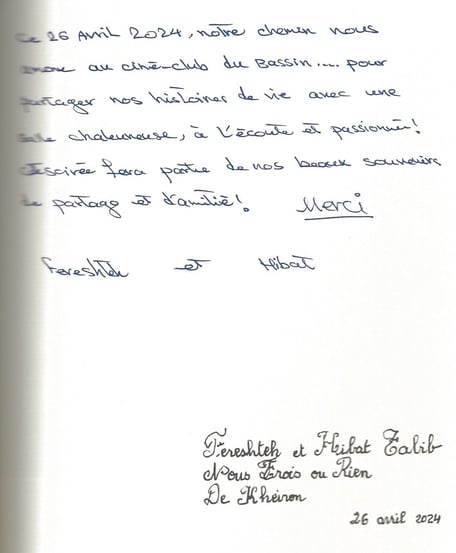 Ce 26 Avril 2024, notre chemin nous
amène au ciné-club du Bassin.... pour
partager nos histoires de vie avec une
salle chaleureuse, à l'écoute et passionnée!
Cette soirée fera partie de nos beaux souvenirs
de partage et d'amitié! Merci
Fereshteh et Hibat
Fereshteh et Hibat Talib
Nous Trois ou Rien
De Kheiron
26 avril 2024